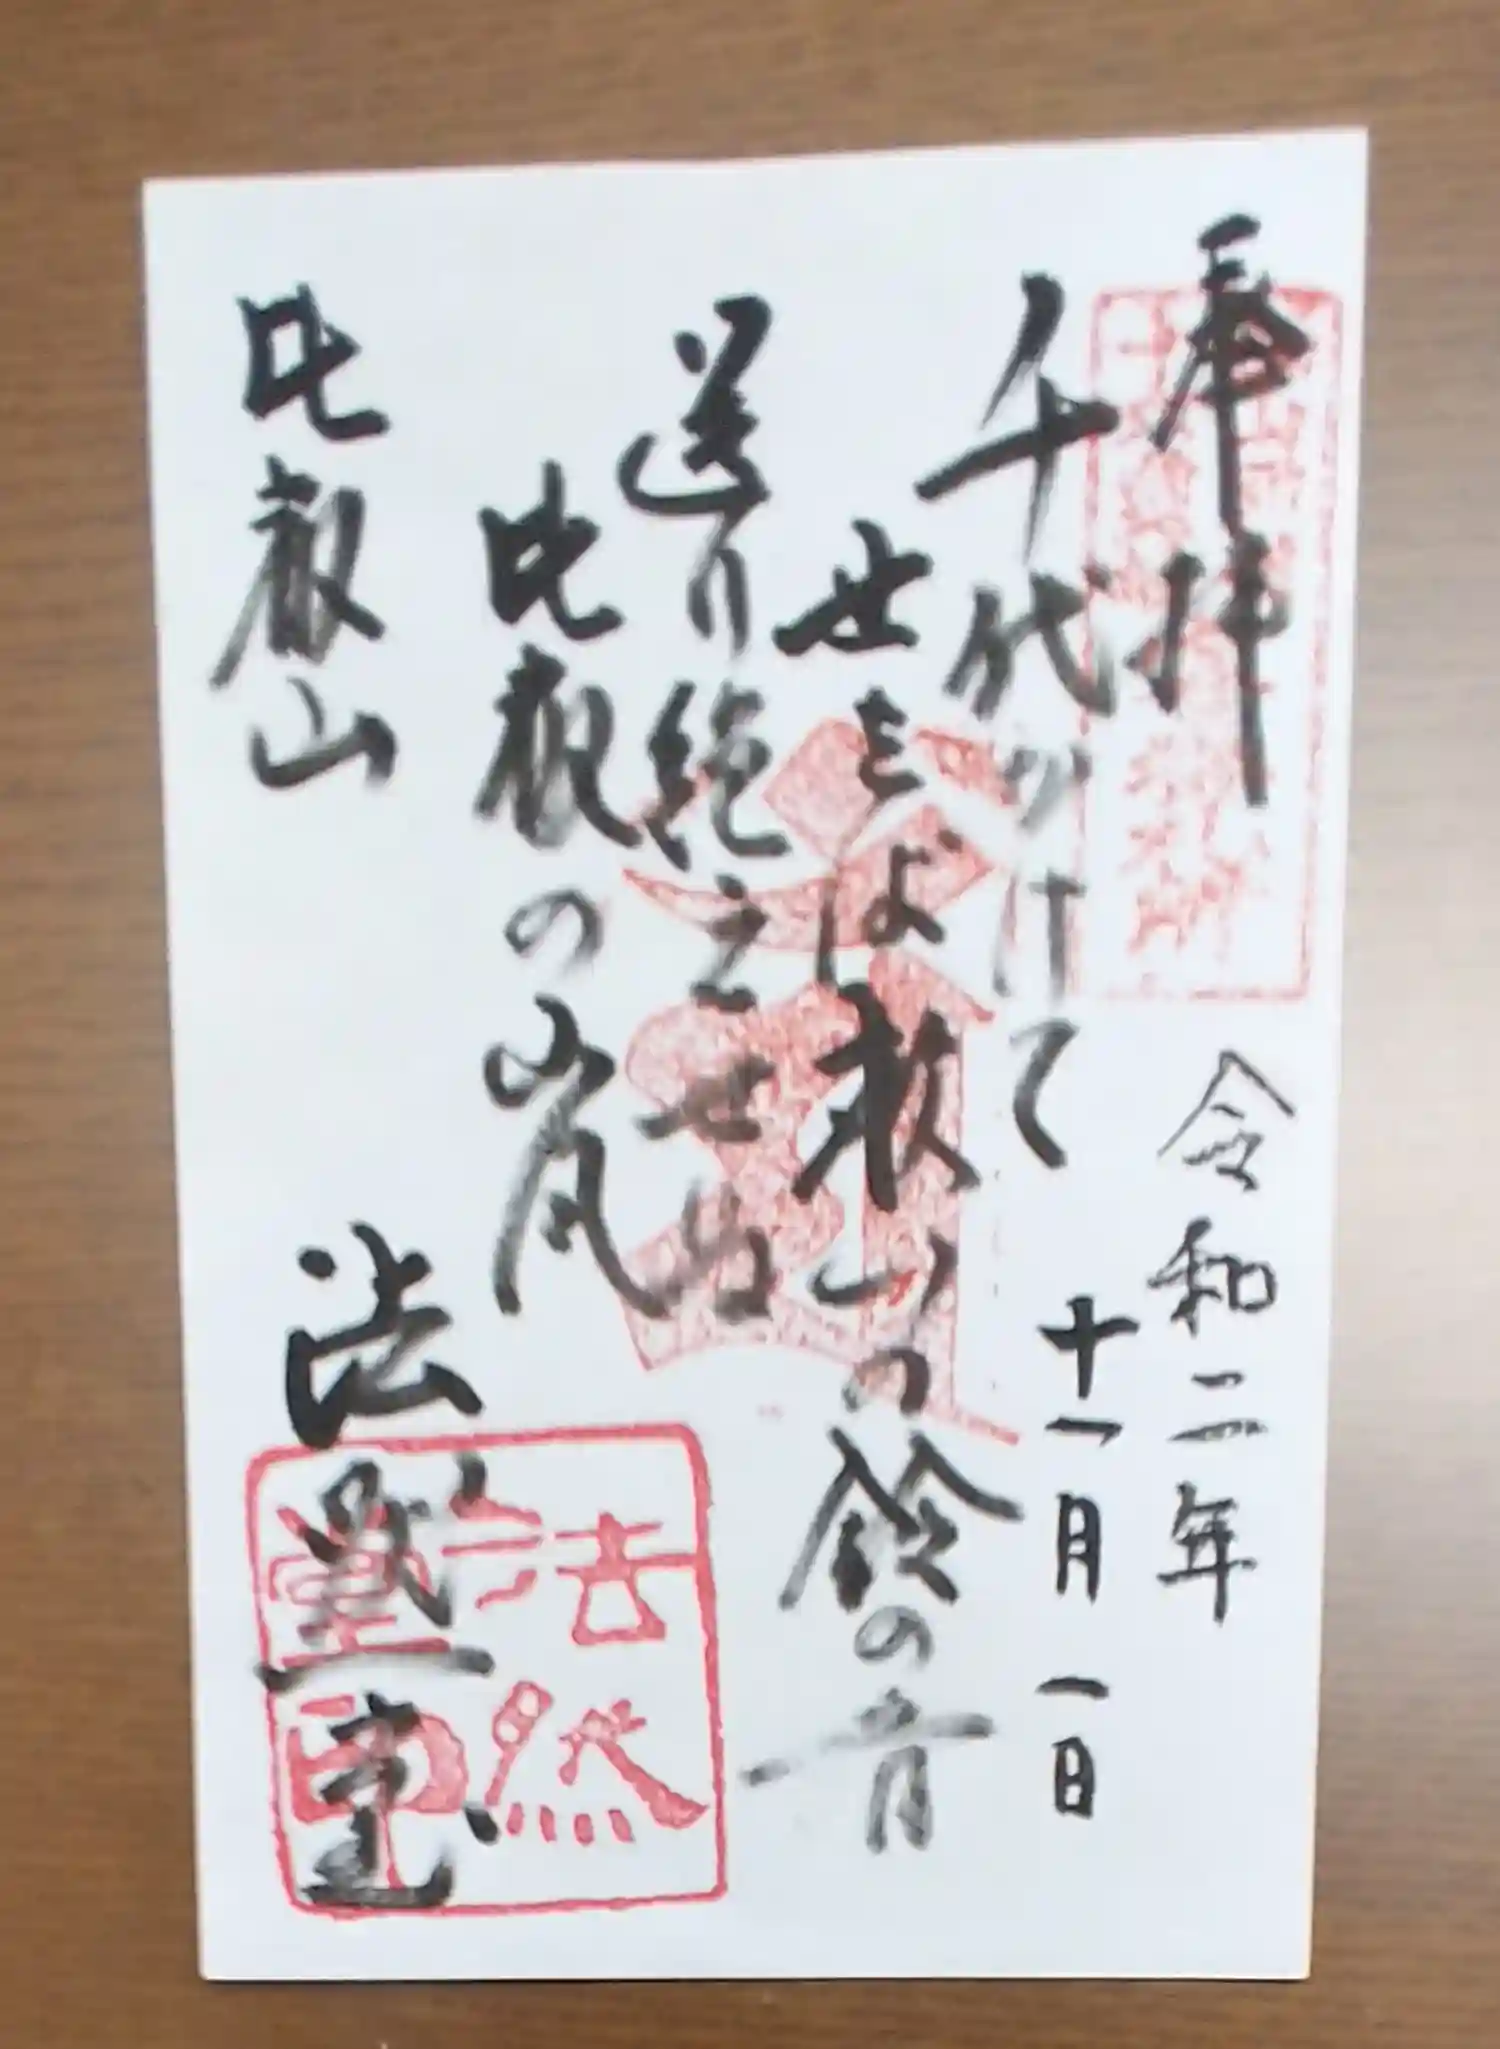 奉拝
令和二年
十一月一日
千代かけて
世をば山の鈴の音
送り絶えせぬ
比叡の山風
比叡山
法然堂
法然
堂印